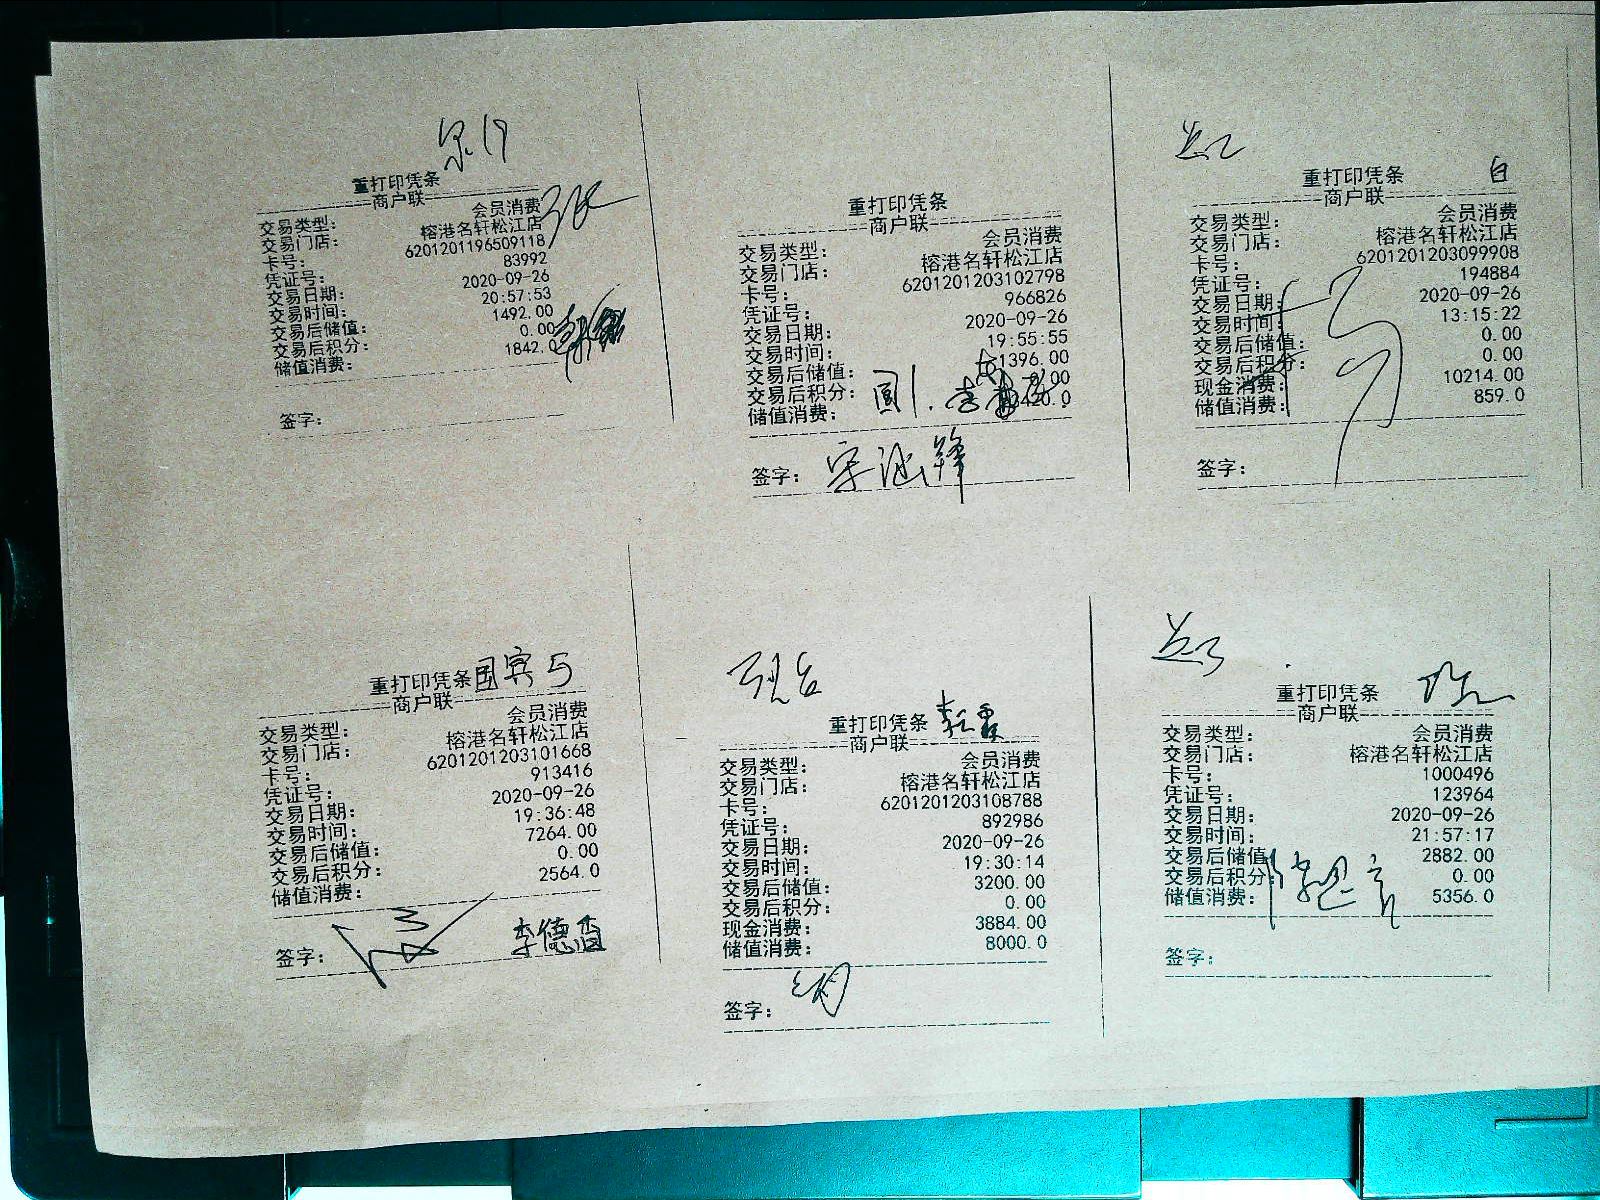 重打印凭条
商户联
交易类型: 会员消费
交易门店: 榕港名轩松江店
卡号: 6201201196509118
凭证号: 83992
交易日期: 2020-09-26
交易时间: 20:57:53
交易后储值: 1492.00
交易后积分: 0.00
储值消费: 1842.0
签字:
重打印凭条
商户联
交易类型: 会员消费
交易门店: 榕港名轩松江店
卡号: 6201201203102798
凭证号: 966826
交易日期: 2020-09-26
交易时间: 19:55:55
交易后储值: 1396.00
交易后积分: 0.00
储值消费:
签字:
白
重打印凭条
商户联
交易类型: 会员消费
交易门店: 榕港名轩松江店
卡号: 6201201203099908
凭证号: 194884
交易日期: 2020-09-26
交易时间: 13:15:22
交易后储值: 0.00
交易后积分: 0.00
现金消费: 10214.00
储值消费: 859.0
签字:
重打印凭条 国宾5
商户联
交易类型: 会员消费
交易门店: 榕港名轩松江店
卡号: 6201201203101668
凭证号: 913416
交易日期: 2020-09-26
交易时间: 19:36:48
交易后储值: 7264.00
交易后积分: 0.00
储值消费: 2564.0
签字: 李德香
重打印凭条
商户联
交易类型: 会员消费
交易门店: 榕港名轩松江店
卡号: 6201201203108788
凭证号: 892986
交易日期: 2020-09-26
交易时间: 19:30:14
交易后储值: 3200.00
交易后积分: 0.00
现金消费: 3884.00
储值消费: 8000.0
签字:
重打印凭条
商户联
交易类型: 会员消费
交易门店: 榕港名轩松江店
卡号: 1000496
凭证号: 123964
交易日期: 2020-09-26
交易时间: 21:57:17
交易后储值: 2882.00
交易后积分: 0.00
储值消费: 5356.0
签字: